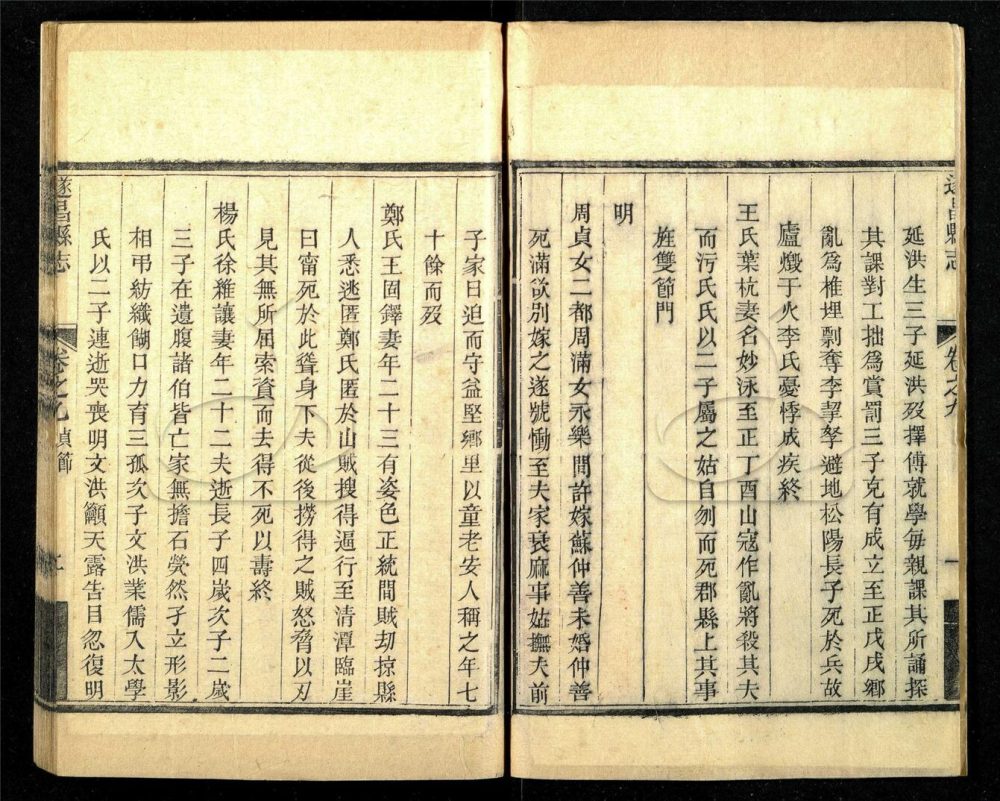 遂昌縣志
卷之九
一
延洪生三子延洪歿擇傅就學每親課其所誦探
其課對工拙爲賞罰三子克有成立至正戊戌鄉
亂爲椎埋剽奪李挈孥避地松陽長子死於兵故
廬燬于火李氏憂悸成疾終
王氏葉杭妻名妙泳至正丁酉山寇作亂將殺其夫
而污氏氏以二子屬之姑自刎而死郡縣上其事
旌雙節門
明
周貞女二都周滿女永樂間許嫁蘇仲善未婚仲善
死滿欲別嫁之遂號慟至夫家衰麻事姑撫夫前
子家日迫而守益堅鄉里以童老安人稱之年七
十餘而歿
鄭氏王固鐸妻年二十三有姿色正統間賊劫掠縣
人悉逃匿鄭氏匿於山賊搜得逼行至清潭臨崖
曰甯死於此聳身下夫從後撈得之賊怒脅以刃
見其無所屈索資而去得不死以壽終
楊氏徐維讓妻年二十二夫逝長子四歲次子二歲
三子在遺腹諸伯皆亡家無擔石煢然孑立形影
相弔紡織餬口力育三孤次子文洪業儒入太學
氏以二子連逝哭喪明文洪籲天露告目忽復明
遂昌縣志
卷之九 貞節